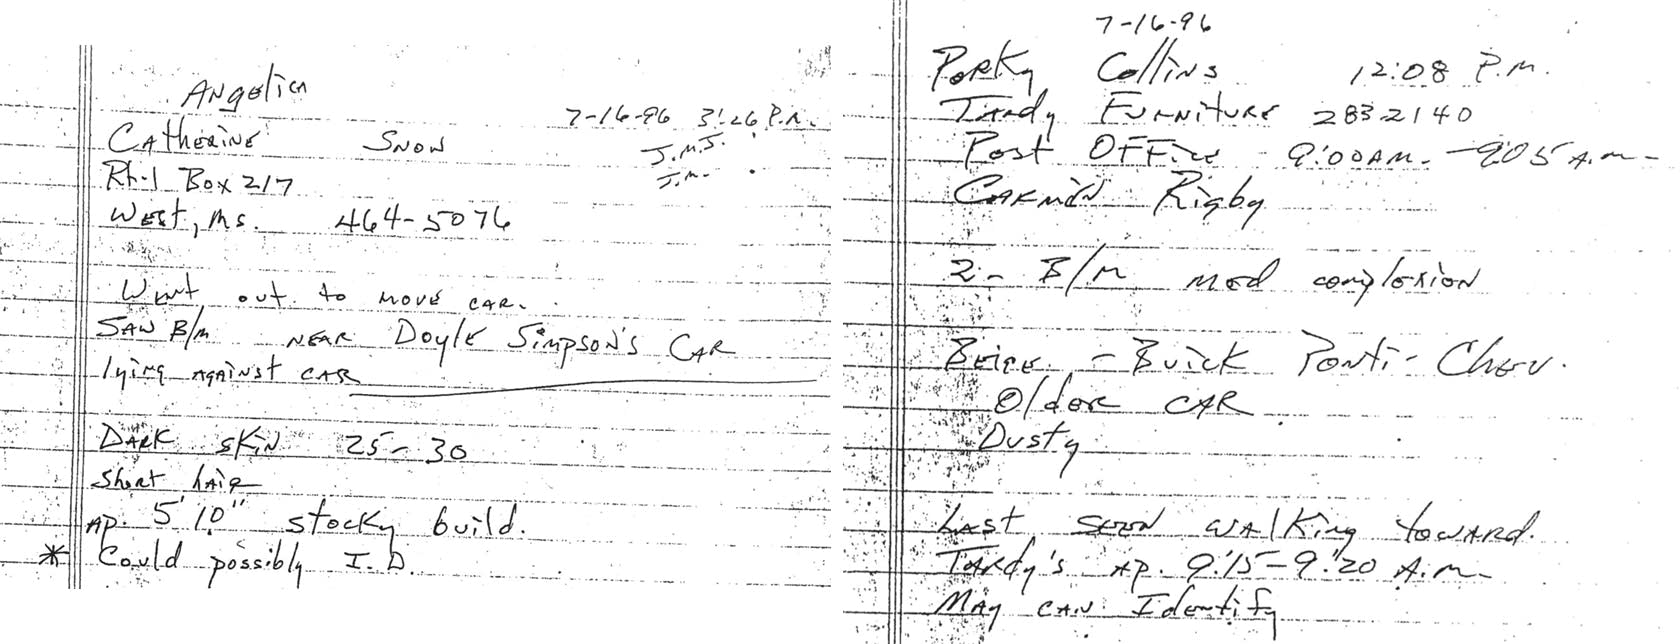 Angelica
Catherine Snow
7-16-96 3:26 P.M.
J.M.J.
J.M.
Rt-1 Box 217
West, Ms. 464-5076
Went out to move car.
Saw B/m near Doyle Simpson's Car
lying against car
Dark skin 25-30
Short hair
Ap. 5'10" stocky build.
* Could possibly I.D.
7-16-96
Porky Collins 12:08 P.M.
Tardy Furniture 283-2140
Post Office - 9:00 A.M. - 9:05 A.M.
Carmen Rigby
2- B/m med complexion
Beige - Buick Ponti- Chev.
Older Car
Dusty
Last seen walking toward.
Tardy's Ap. 9:15-9:20 A.M.
May can Identify